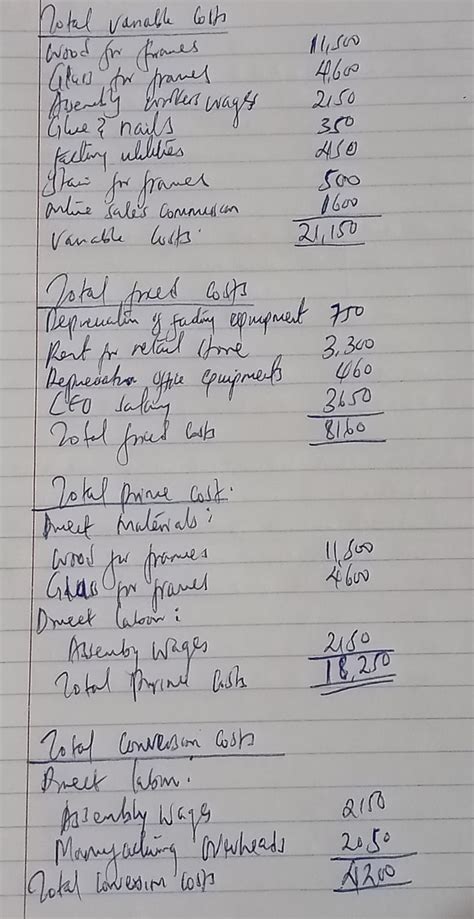 Total variable costs
Wood for frames 11,500
Glass for frames 4,600
Assembly workers wages 2150
Glue & nails 350
Factory utilities 450
Stain for frames 500
Online sales commission 1600
Variable costs. 21,150
Total fixed costs
Depreciation of factory equipment 750
Rent for retail store 3,300
Depreciation office equipments 460
CEO salary 3650
Total fixed costs 8160
Total prime cost.
Direct materials:
Wood for frames 11,500
Glass for frames 4600
Direct labour:
Assembly wages 2150
Total prime costs 18,250
Total conversion costs
Direct labour.
Assembly wages 2150
Manufacturing overheads 2050
Total conversion costs 4200